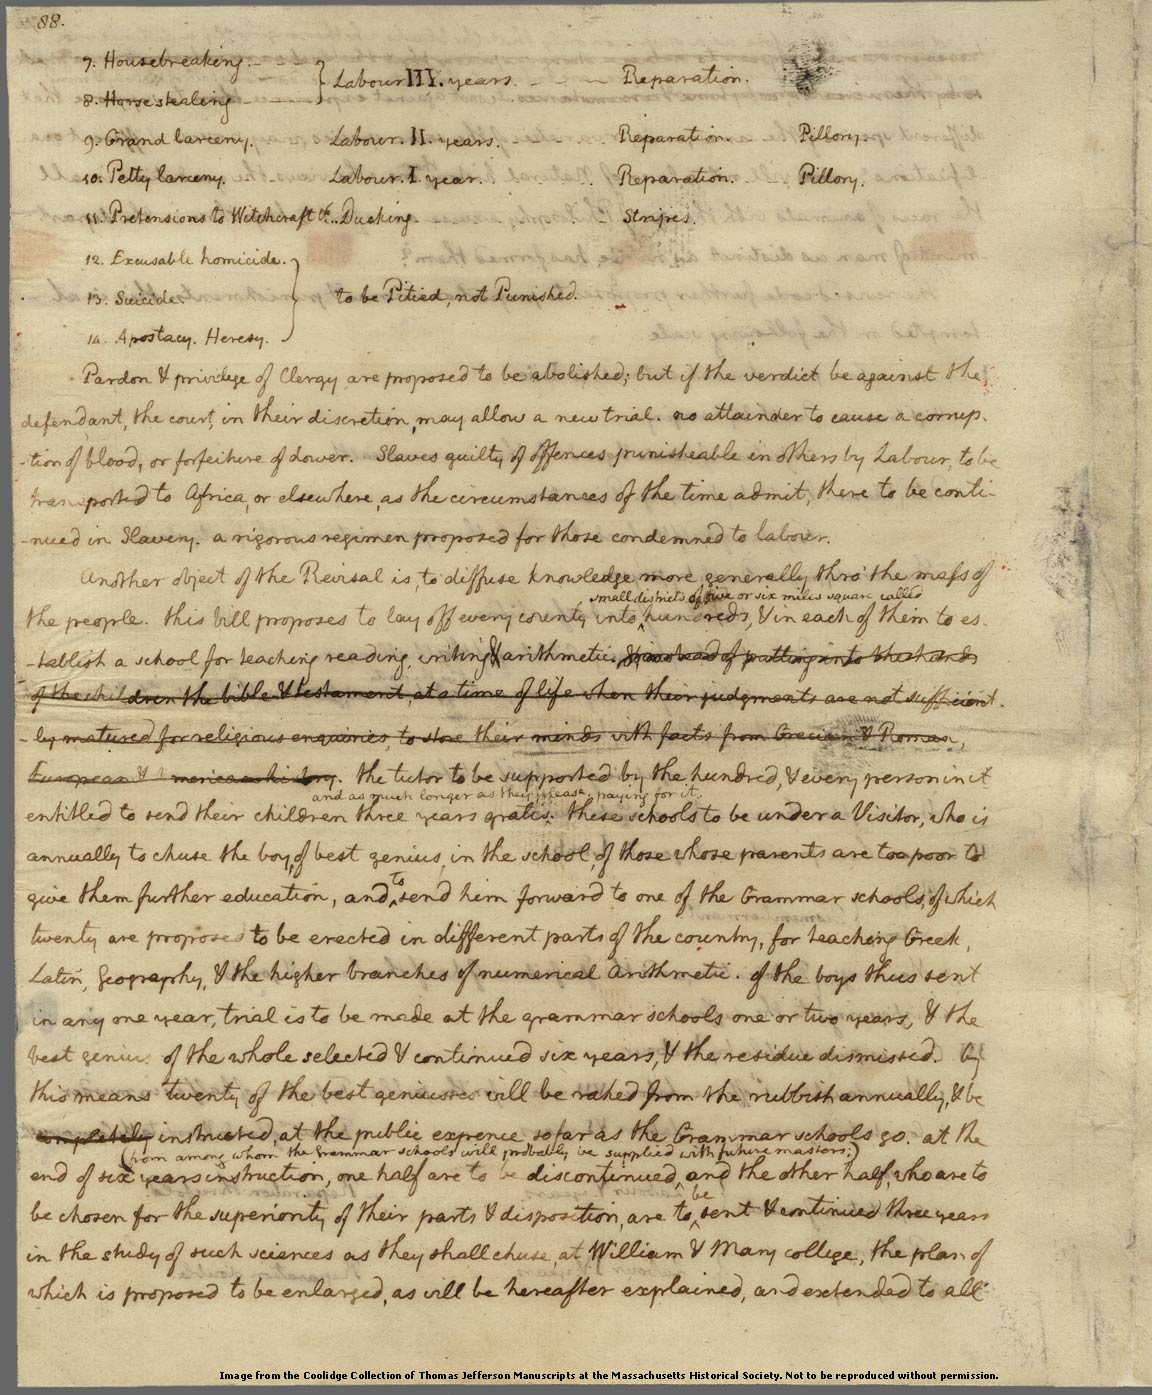 88.
7. Housebreaking. } Labour III. years. Reparation.
8. Horsestealing
9. Grand larceny. Labour. II. years. Reparation. Pillory.
10. Petty larceny. Labour. I. year. Reparation. Pillory.
11. Pretensions to Witchcraft &c. Ducking. Stripes.
12. Excusable homicide.
13. Suicide. } to be Pitied, not Punished.
14. Apostacy. Heresy.
Pardon & privilege of Clergy are proposed to be abolished; but if the verdict be against the
defendant, the court, in their discretion, may allow a new trial. no attainder to cause a corrup-
-tion of blood, or forfeiture of dower. Slaves guilty of offences punisheable in others by Labour, to be
transported to Africa, or elsewhere, as the circumstances of the time admit, there to be conti-
-nued in Slavery. a rigorous regimen proposed for those condemned to labour.
Another object of the Revisal is, to diffuse knowledge more generally thro' the mass of
small districts of five or six miles square called
the people. this bill proposes to lay off every county into hundreds, & in each of them to es-
-tablish a school for teaching reading, writing & arithmetic. & instead of putting into the hands
of the children the bible & testament, at a time of life when their judgments are not sufficient-
-ly matured for religious enquiries, to store their minds with facts from Grecian & Roman,
European & American history. the tutor to be supported by the hundred, & every person in it
and as much longer as they please, paying for it.
entitled to send their children three years gratis. these schools to be under a Visitor, who is
annually to chuse the boy, of best genius, in the school, of those whose parents are too poor to
give them further education, and to send him forward to one of the Grammar schools, of which
twenty are proposed to be erected in different parts of the country, for teaching Greek,
Latin, Geography, & the higher branches of numerical arithmetic. of the boys thus sent
in any one year, trial is to be made at the grammar schools one or two years, & the
best genius of the whole selected & continued six years, & the residue dismissed. by
this means twenty of the best geniusses will be raked from the rubbish annually, & be
completely instructed, at the public expence, so far as the Grammar schools go. at the
(from among whom the Grammar schools will probably be supplied with future masters;)
end of six years instruction, one half are to be discontinued, and the other half, who are to
be chosen for the superiority of their parts & disposition, are to be sent & continued three years
in the study of such sciences as they shall chuse, at William & Mary college, the plan of
which is proposed to be enlarged, as will be hereafter explained, and extended to all
Image from the Coolidge Collection of Thomas Jefferson Manuscripts at the Massachusetts Historical Society. Not to be reproduced without permission.